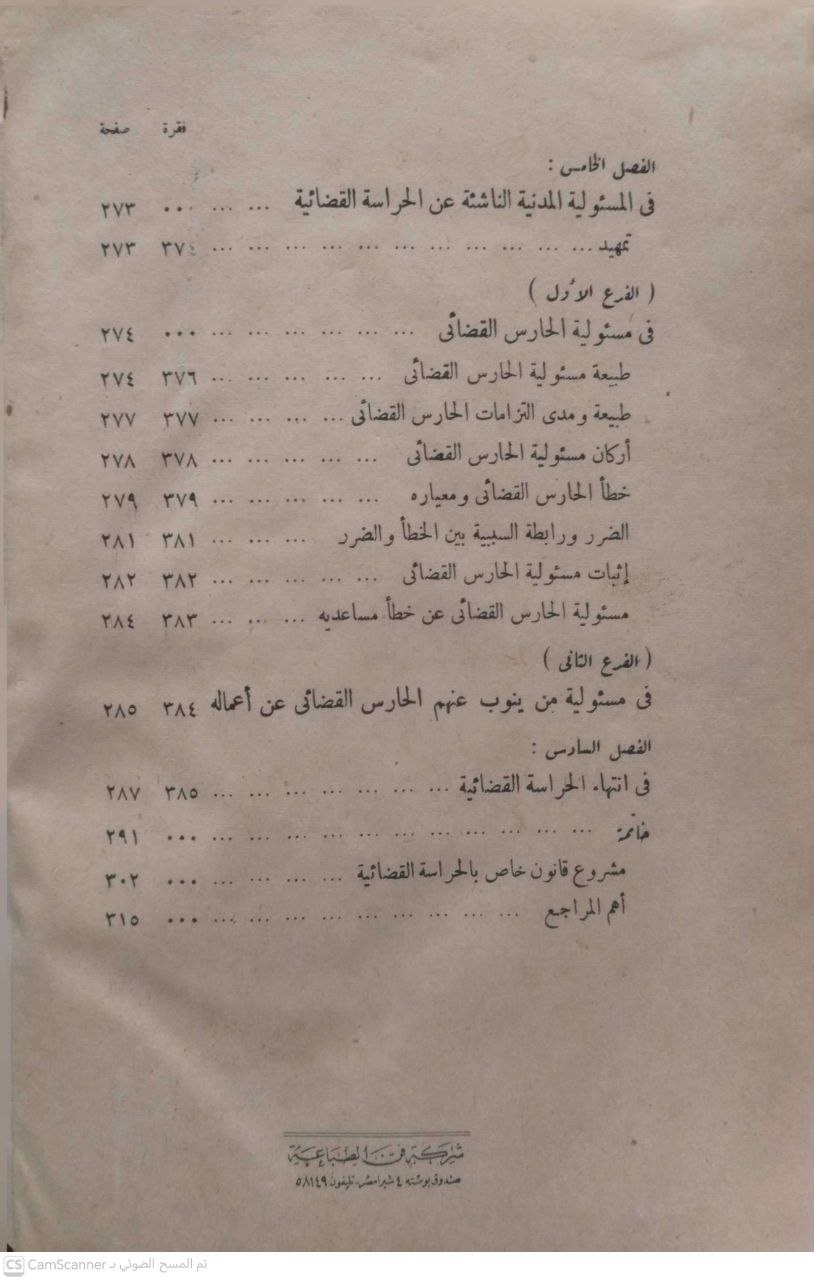 فقرة صفحة
الفصل الخامس :
فى المسئولية المدنية الناشئة عن الحراسة القضائية ... ... ... ٢٧٣
تمهيد ... ... ... ... ... ... ... ... ... ... ... ٣٧٤ ٢٧٣
( الفرع الأول )
فى مسئولية الحارس القضائى ... ... ... ... ... ... ... ٢٧٤
طبيعة مسئولية الحارس القضائى ... ... ... ... ... ٣٧٦ ٢٧٤
طبيعة ومدى التزامات الحارس القضائى ... ... ... ... ٣٧٧ ٢٧٧
أركان مسئولية الحارس القضائى ... ... ... ... ... ٣٧٨ ٢٧٨
خطأ الحارس القضائى ومعياره ... ... ... ... ... ٣٧٩ ٢٧٩
الضرر ورابطة السببية بين الخطأ والضرر ... ... ... ... ٣٨١ ٢٨١
إثبات مسئولية الحارس القضائى ... ... ... ... ... ٣٨٢ ٢٨٢
مسئولية الحارس القضائى عن خطأ مساعديه ... ... ... ... ٣٨٣ ٢٨٤
( الفرع الثانى )
فى مسئولية من ينوب عنهم الحارس القضائى عن أعماله ٣٨٤ ٢٨٥
الفصل السادس :
فى انتهاء الحراسة القضائية ... ... ... ... ... ... ... ٣٨٥ ٢٨٧
خاتمة ... ... ... ... ... ... ... ... ... ... ... ... ٢٩١
مشروع قانون خاص بالحراسة القضائية ... ... ... ... ... ٣٠٢
أهم المراجع ... ... ... ... ... ... ... ... ... ... ٣١٥
شركة فن الطباعة
صندوق بوسته ٤ شبرا مصر، تليفون ٥٨١٤٩
CS CamScanner تم المسح الضوئي بـ